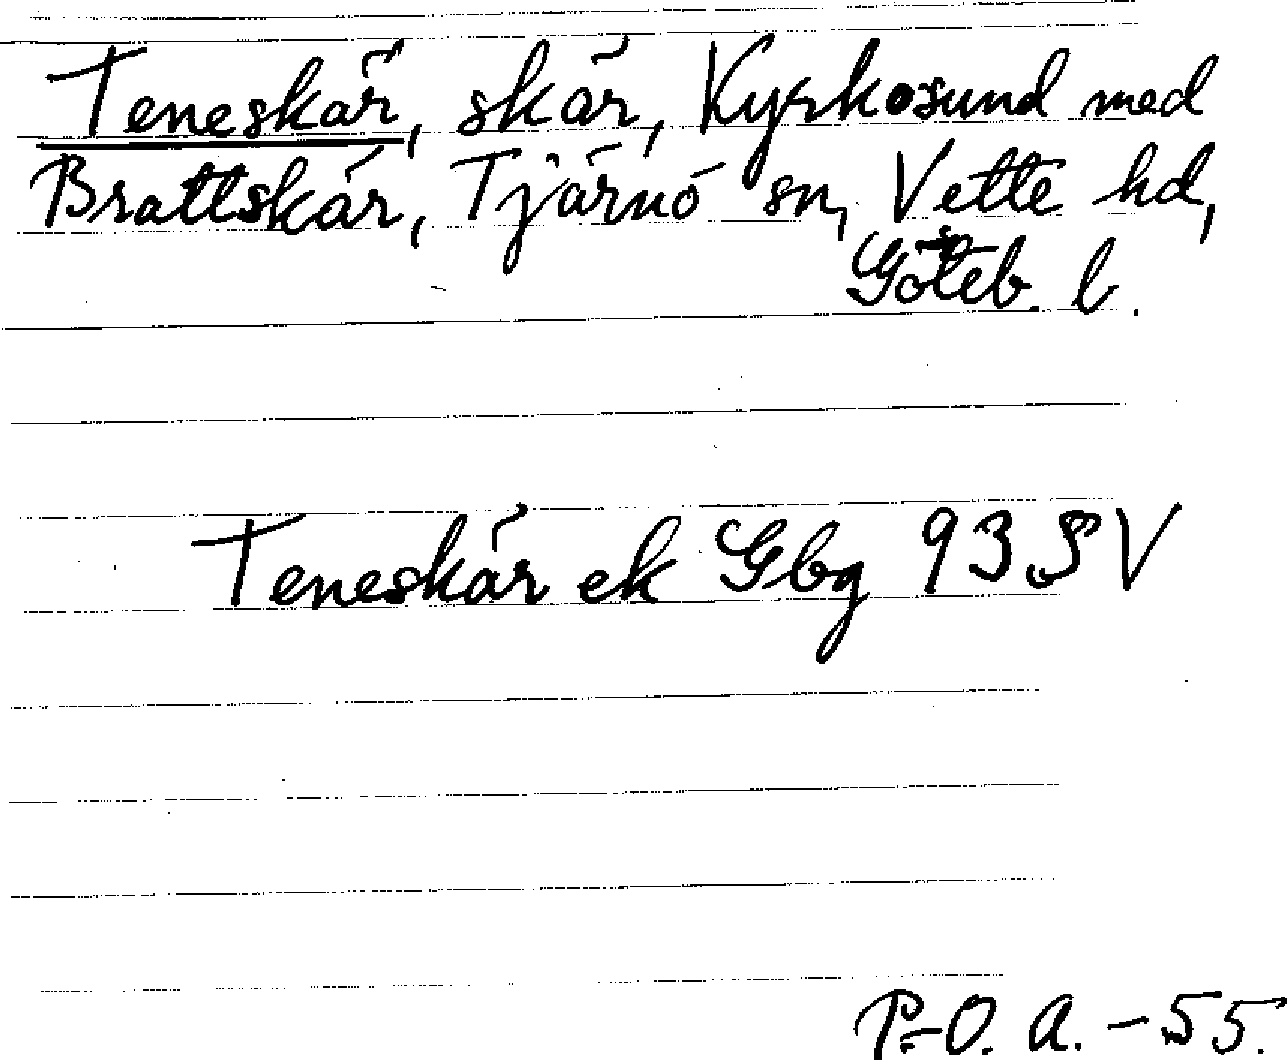 Teneskär, skär, Kyrkosund med
Brattskär, Tjärnö sn, Vette hd,
Göteb. l.
Teneskär ek Gbg 93 SV
P.-O. A. -55.